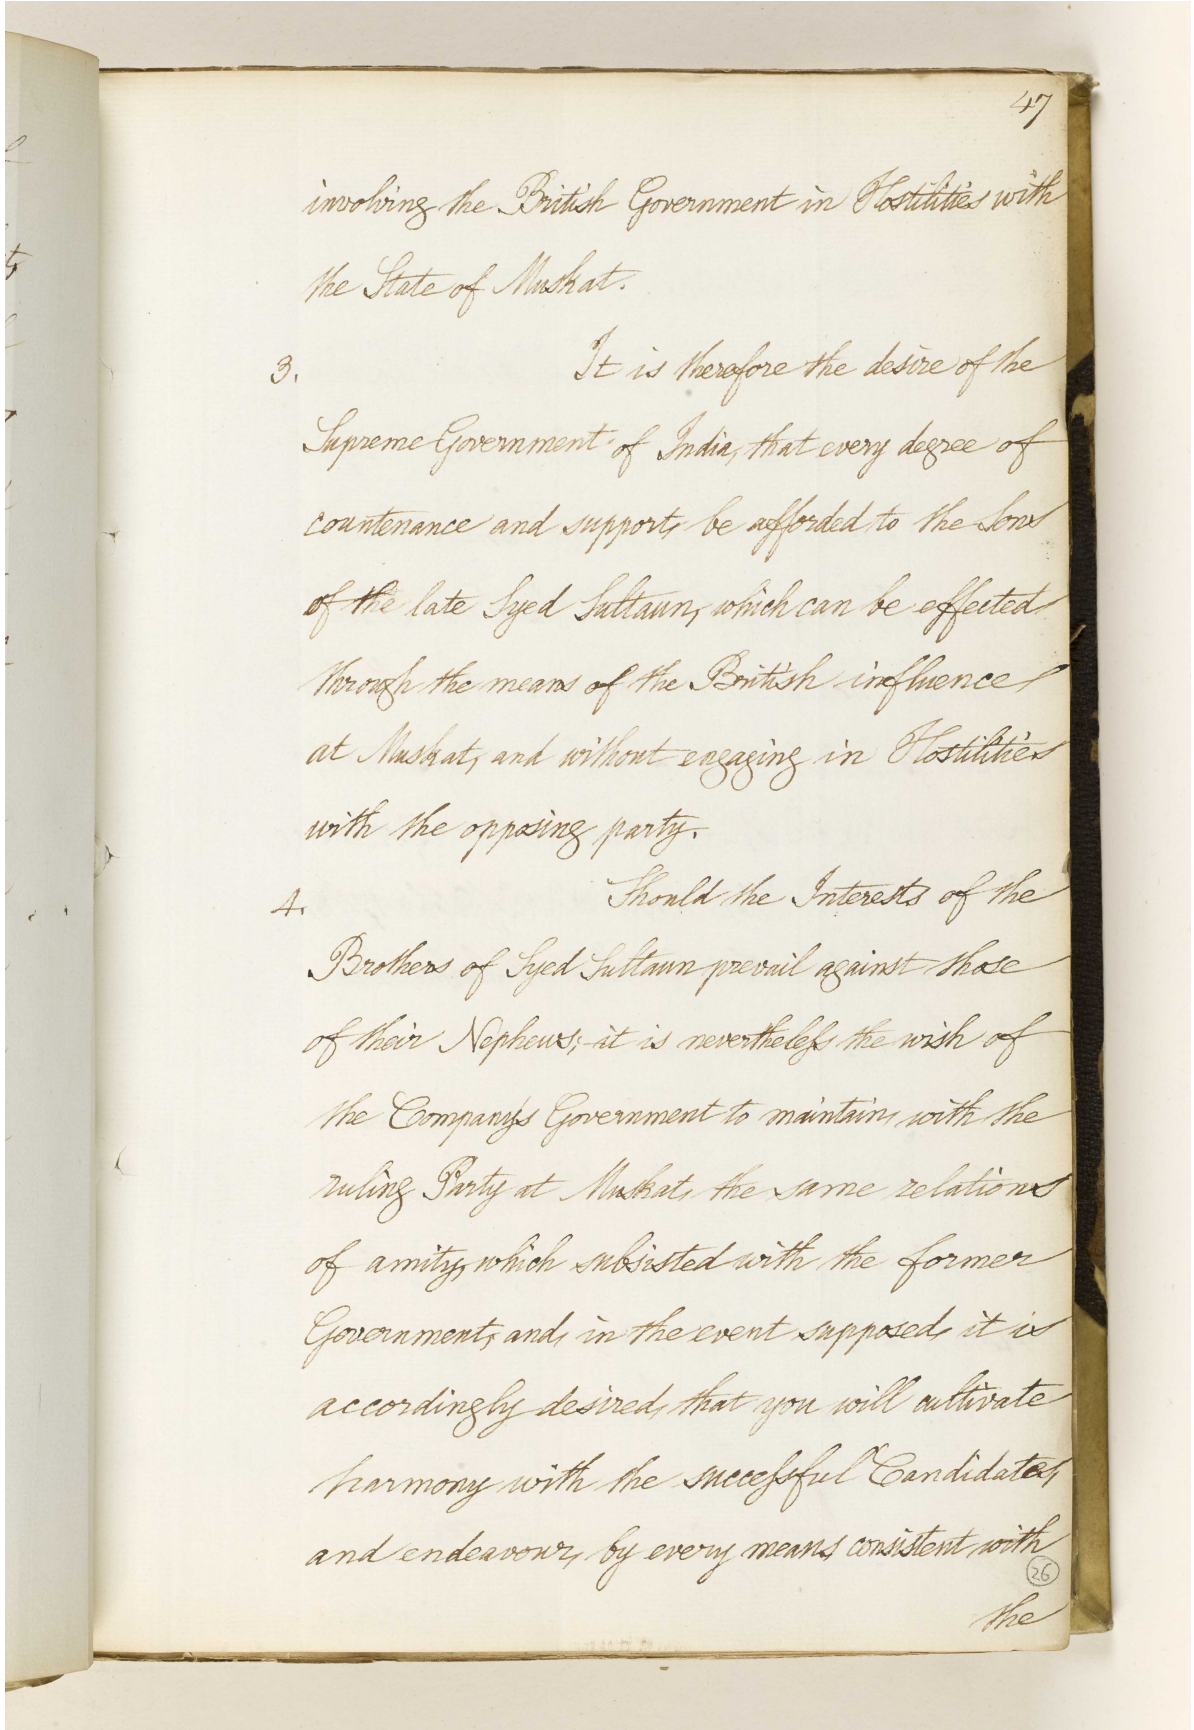 47
involving the British Government in Hostilities with
the State of Muskat.
3. It is therefore the desire of the
Supreme Government of India, that every degree of
countenance and support, be afforded to the Sons
of the late Syed Sultaun, which can be effected
through the means of the British influence
at Muskat, and without engaging in Hostilities
with the opposing party.
4. Should the Interests of the
Brothers of Syed Sultaun prevail against those
of their Nephews; it is nevertheleſs the wish of
the Company's Government to maintain, with the
ruling Party at Muskat, the same relations
of amity, which subsisted with the former
Government, and, in the event supposed, it is
accordingly desired, that you will cultivate
harmony with the succeſsful Candidates,
and endeavour, by every means, consistent, with
26
the